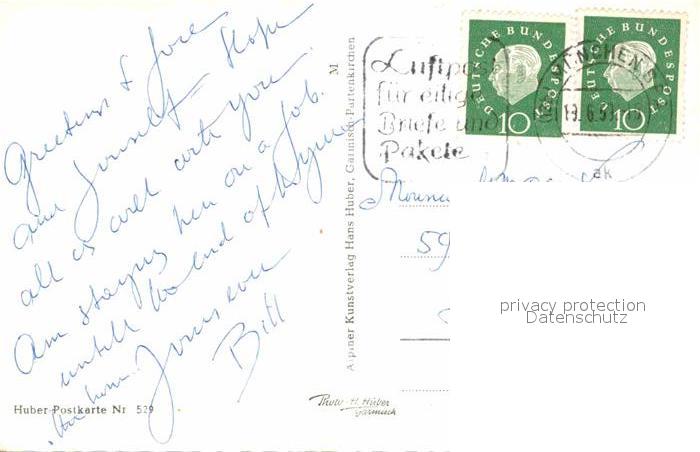 Greetings to June
and yourself Hope
all is well with you.
Am staying here on a job.
untill the end of
Yours ever
Bill
Huber-Postkarte Nr 529
M
Alpiner Kunstverlag Hans Huber, Garmisch-Partenkirchen
Photo-H. Huber
Garmisch
Luftpost
für eilige
Briefe und
Pakete
DEUTSCHE BUNDESPOST
10
DEUTSCHE BUNDESPOST
10
MÜNCHEN
19.6.59
ak
59
privacy protection
Datenschutz